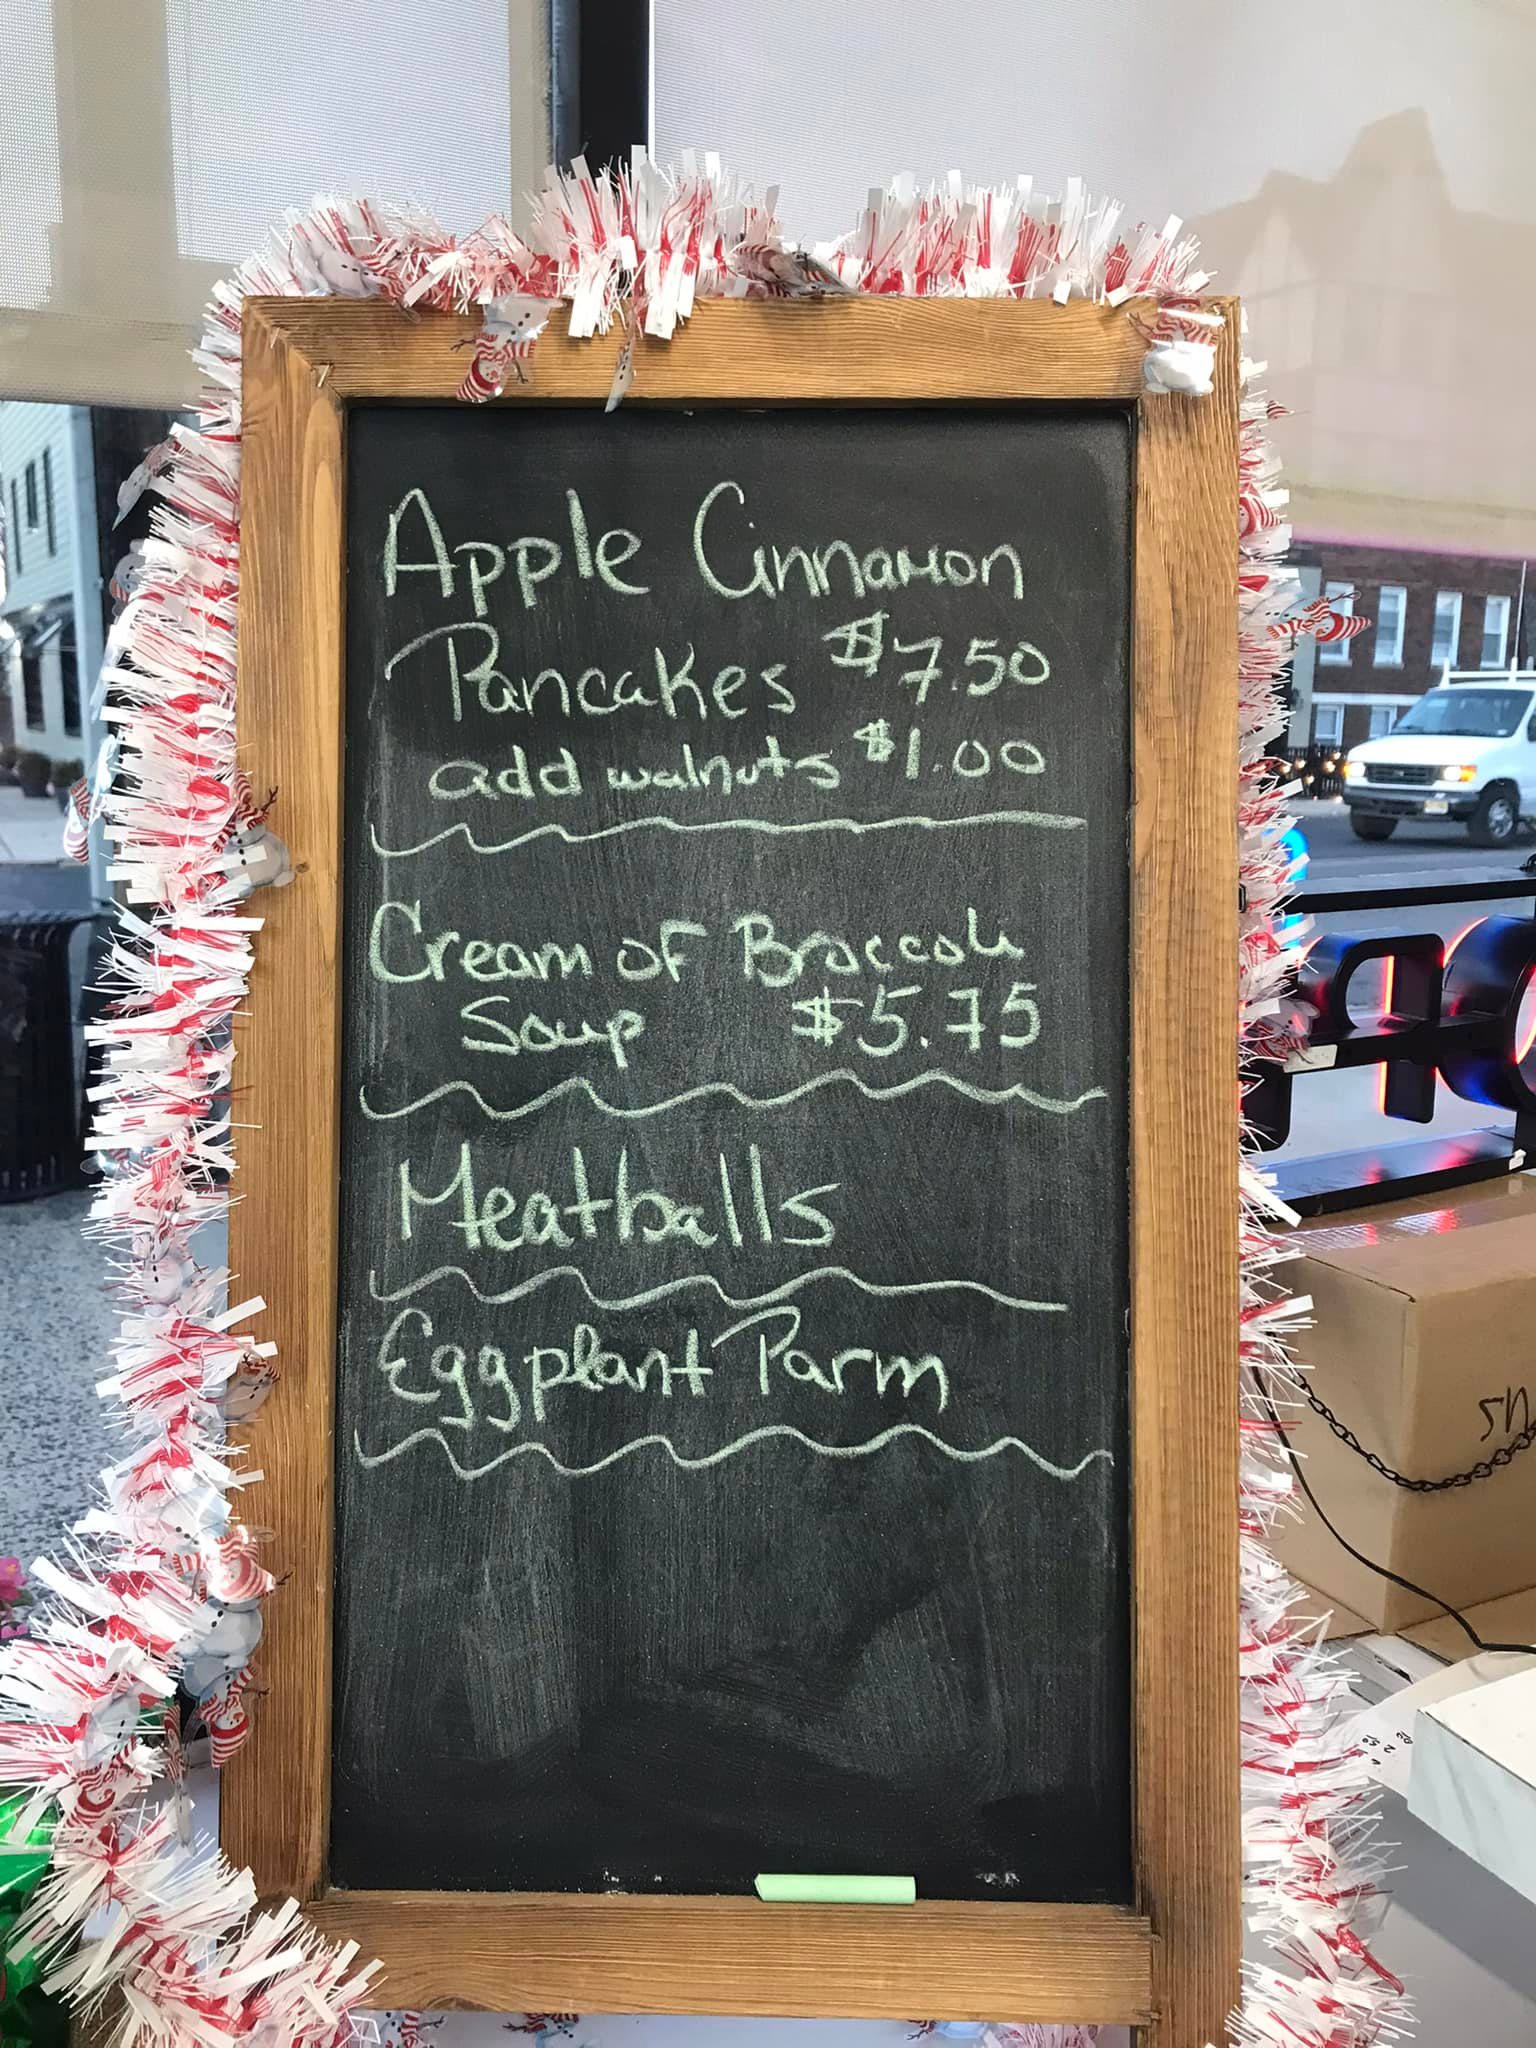 Apple Cinnamon
Pancakes $7.50
add walnuts $1.00
Cream of Broccoli
Soup $5.75
Meatballs
Eggplant Parm